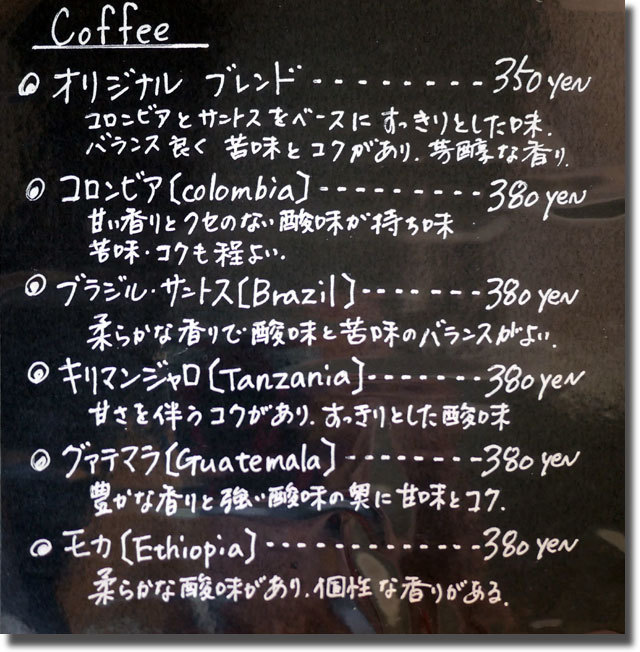 Coffee
オリジナル ブレンド - - - - - - - - 350 YEN
コロンビアとサントスをベースにすっきりとした味.
バランス良く 苦味とコクがあり.芳醇な香り.
コロンビア[colombia] - - - - - - - - - 380 YEN
甘い香りとクセのない酸味が持ち味
苦味・コクも程よい.
ブラジル・サントス[Brazil] - - - - - - - 380 YEN
柔らかな香りで酸味と苦味のバランスがよい.
キリマンジャロ[Tanzania] - - - - - - - 380 YEN
甘さを伴うコクがあり.すっきりとした酸味
グァテマラ[Guatemala] - - - - - - - - 380 YEN
豊かな香りと強い酸味の奥に甘味とコク.
モカ[Ethiopia] - - - - - - - - - - - - - 380 YEN
柔らかな酸味があり.個性な香りがある.